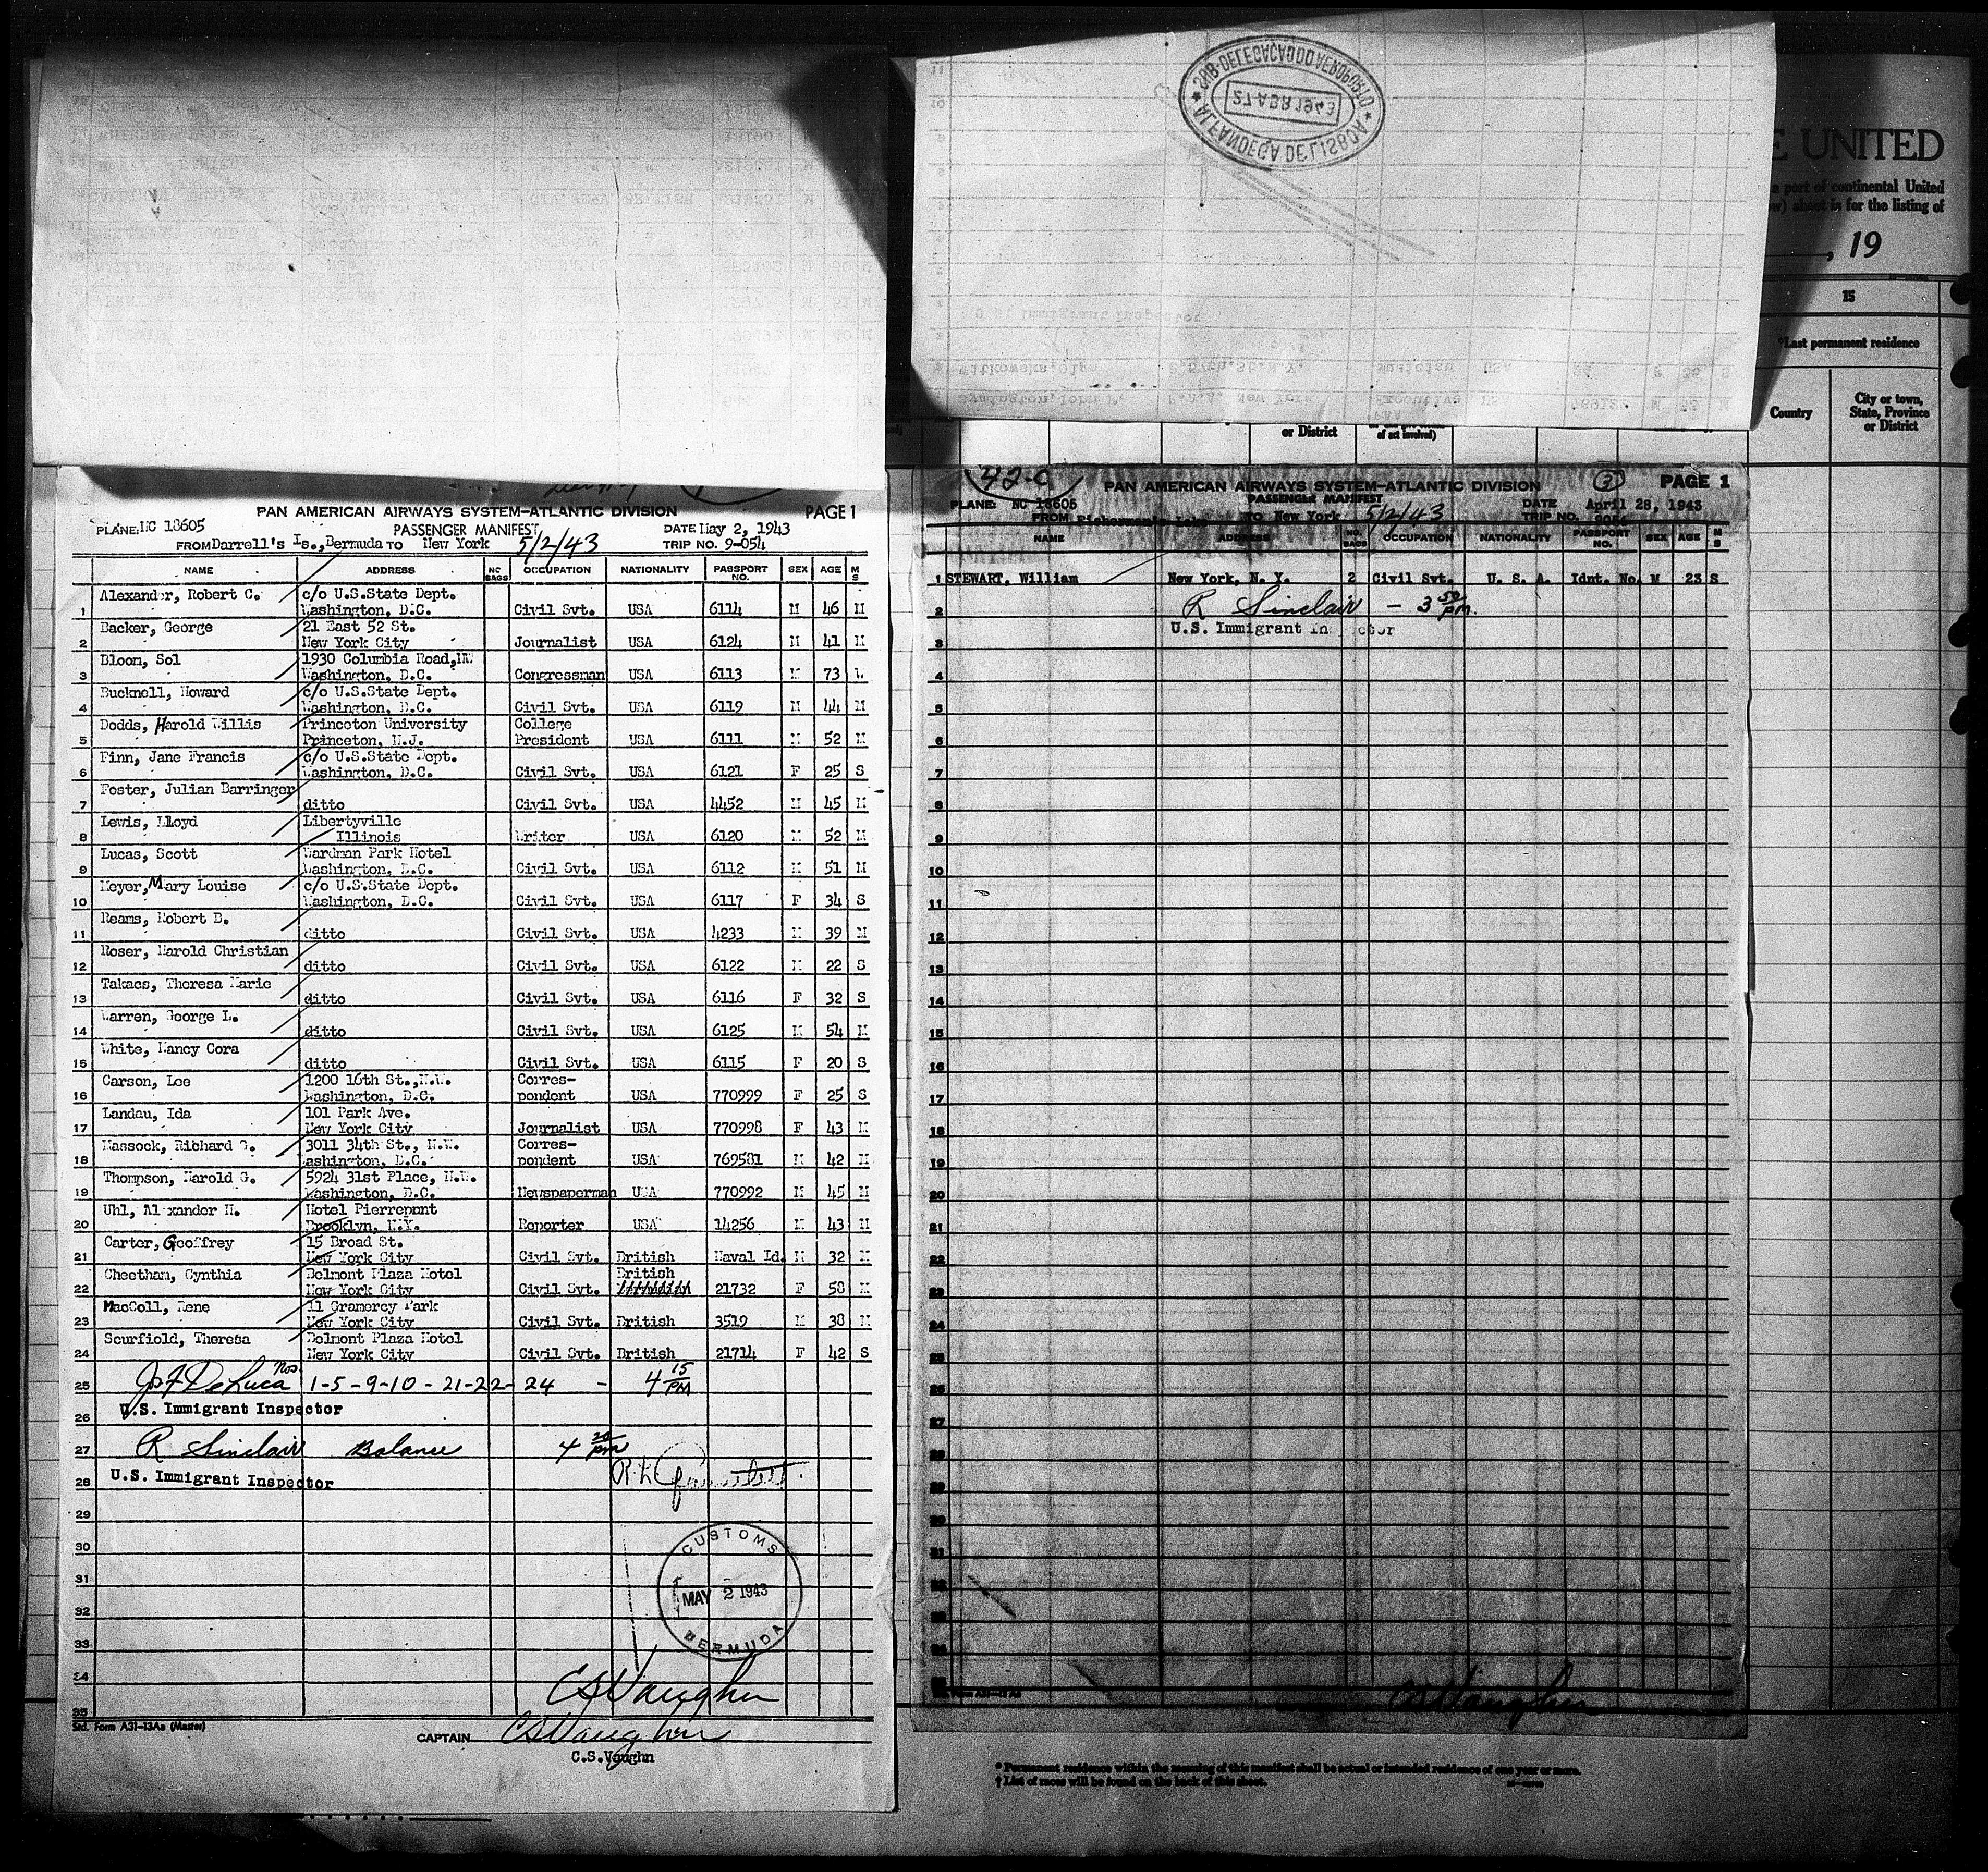 PAN AMERICAN AIRWAYS SYSTEM-ATLANTIC DIVISION PAGE 1
PLANE: NC 18605 PASSENGER MANIFEST DATE May 2, 1943
FROM Darrell's Is., Bermuda TO New York 5/2/43 TRIP NO. 9-054
NAME ADDRESS NO. BAGS OCCUPATION NATIONALITY PASSPORT NO. SEX AGE M S
Alexander, Robert C. c/o U.S.State Dept.
1 Washington, D.C. Civil Svt. USA 6114 M 46 M
Backer, George 21 East 52 St.
2 New York City Journalist USA 6124 M 41 M
Bloom, Sol 1930 Columbia Road,NW.
3 Washington, D.C. Congressman USA 6113 M 73 W
Bucknell, Howard c/o U.S.State Dept.
4 Washington, D.C. Civil Svt. USA 6119 M 44 M
Dodds, Harold Willis Princeton University College
5 Princeton, N.J. President USA 6111 M 52 M
Finn, Jane Francis c/o U.S.State Dept.
6 Washington, D.C. Civil Svt. USA 6121 F 25 S
Foster, Julian Barringer
7 ditto Civil Svt. USA 4452 M 45 M
Lewis, Lloyd Libertyville
8 Illinois Writer USA 6120 M 52 M
Lucas, Scott Wardman Park Hotel
9 Washington, D.C. Civil Svt. USA 6112 M 51 M
Meyer, Mary Louise c/o U.S.State Dept.
10 Washington, D.C. Civil Svt. USA 6117 F 34 S
Reams, Robert B.
11 ditto Civil Svt. USA 4233 M 39 M
Roser, Harold Christian
12 ditto Civil Svt. USA 6122 M 22 S
Takacs, Theresa Marie
13 ditto Civil Svt. USA 6116 F 32 S
Warren, George L.
14 ditto Civil Svt. USA 6125 M 54 M
White, Nancy Cora
15 ditto Civil Svt. USA 6115 F 20 S
Carson, Lee 1200 16th St.,N.W. Corres-
16 Washington, D.C. pondent USA 770999 F 25 S
Landau, Ida 101 Park Ave.
17 New York City Journalist USA 770998 F 43 M
Massock, Richard G. 3011 34th St., N.W. Corres-
18 Washington, D.C. pondent USA 769581 M 42 M
Thompson, Harold G. 5924 31st Place, N.W.
19 Washington, D.C. Newspaperman USA 770992 M 45 M
Uhl, Alexander H. Hotel Pierrepont
20 Brooklyn, N.Y. Reporter USA 14256 M 43 M
Carter, Geoffrey 15 Broad St.
21 New York City Civil Svt. British Naval Id. M 32 M
Cheetham, Cynthia Belmont Plaza Hotel British
22 New York City Civil Svt. 21732 F 58 M
MacColl, Rene 11 Gramercy Park
23 New York City Civil Svt. British 3519 M 38 M
Scurfield, Theresa Belmont Plaza Hotel
24 New York City Civil Svt. British 21714 F 42 S
25 J F DeLuca Nos. 1-5-9-10-21-22-24 - 4 15 PM
26 U.S. Immigrant Inspector
27 R Sinclair Balance 4 20 pm
28 U.S. Immigrant Inspector
29
30
31
32
33
34
35
CUSTOMS
MAY 2 1943
BERMUDA
CSVaughn
Std. Form A31-13Aa (Master)
CAPTAIN CSVaughn
C.S.Vaughn
SUB-DELEGAÇÃO DO AEROPORTO
27 ABR 1943
ALFANDEGA DE LISBOA
Symington, John F. P.A.A. New York Executive USA
Witkowska, Olga Musician USA
U S Immigrant Inspector
or District of act involved)
42-C PAN AMERICAN AIRWAYS SYSTEM-ATLANTIC DIVISION 3 PAGE 1
PLANE: NC 18605 PASSENGER MANIFEST DATE April 28, 1943
FROM Fisherman's Lake TO New York 5/2/43 TRIP NO. 9054
NAME ADDRESS NO. BAGS OCCUPATION NATIONALITY PASSPORT NO. SEX AGE M S
1 STEWART, William New York, N. Y. 2 Civil Svt. U. S. A. Idnt. No. M 23 S
2 R Sinclair - 3 50 PM.
U.S. Immigrant Inspector
3
4
5
6
7
8
9
10
11
12
13
14
15
16
17
18
19
20
21
22
23
24
25
26
27
28
29
30
31
32
33
34
CSVaughn
E UNITED
a port of continental United
ow) sheet is for the listing of
, 19
15
*Last permanent residence
Country City or town, State, Province or District
* Permanent residence within the meaning of this manifest shall be actual or intended residence of one year or more.
† List of races will be found on the back of this sheet.